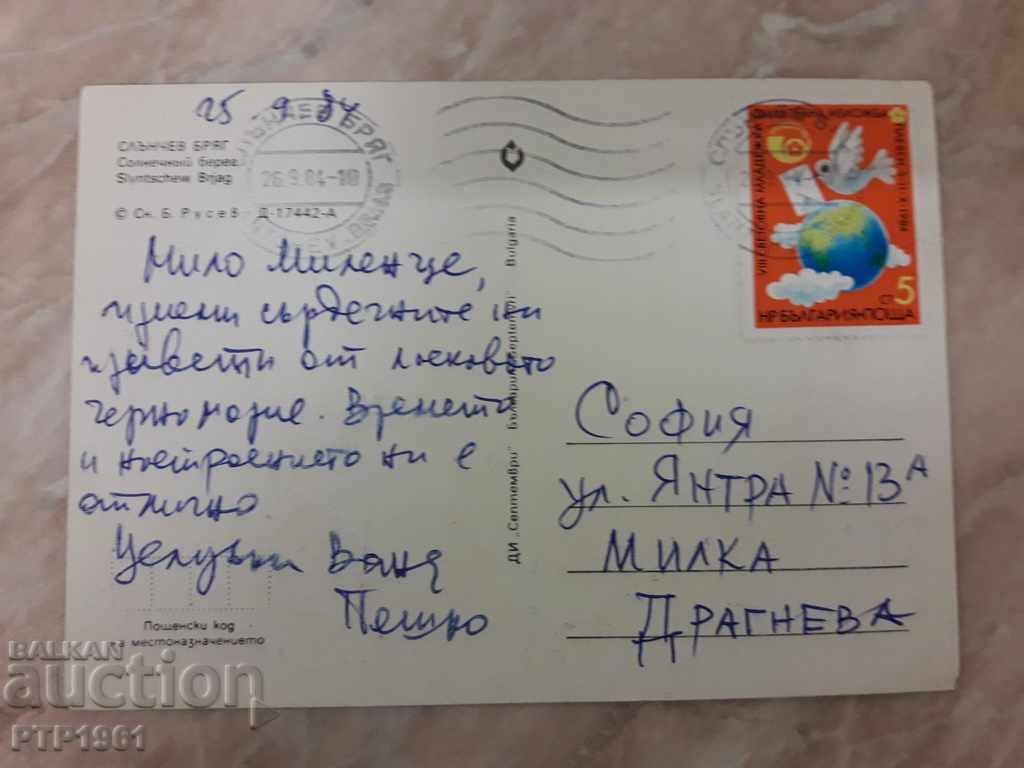 25 9 84
СЛЪНЧЕВ БРЯГ
Солнечный берег
Slyntschew Brjag
© Сн. Б. Русев Д-17442-А
СЛЪНЧЕВ БРЯГ
26.9.84-10
Мило Миленце,
приеми сърдечните ни
привети от
черноморие. Времето
и настроението ни е
отлично
Целувки Ваня
Пешко
Пощенски код
а местоназначението
ДИ „Септември"
Bulgaria
VIII СВЕТОВНА МЛАДЕЖКА
ИЗЛОЖБА
1984
СТ 5
НР БЪЛГАРИЯ•ПОЩА
СОФИЯ
ул. ЯНТРА № 13 А
МИЛКА
ДРАГНЕВА
BALKAN
auction
PTP1961